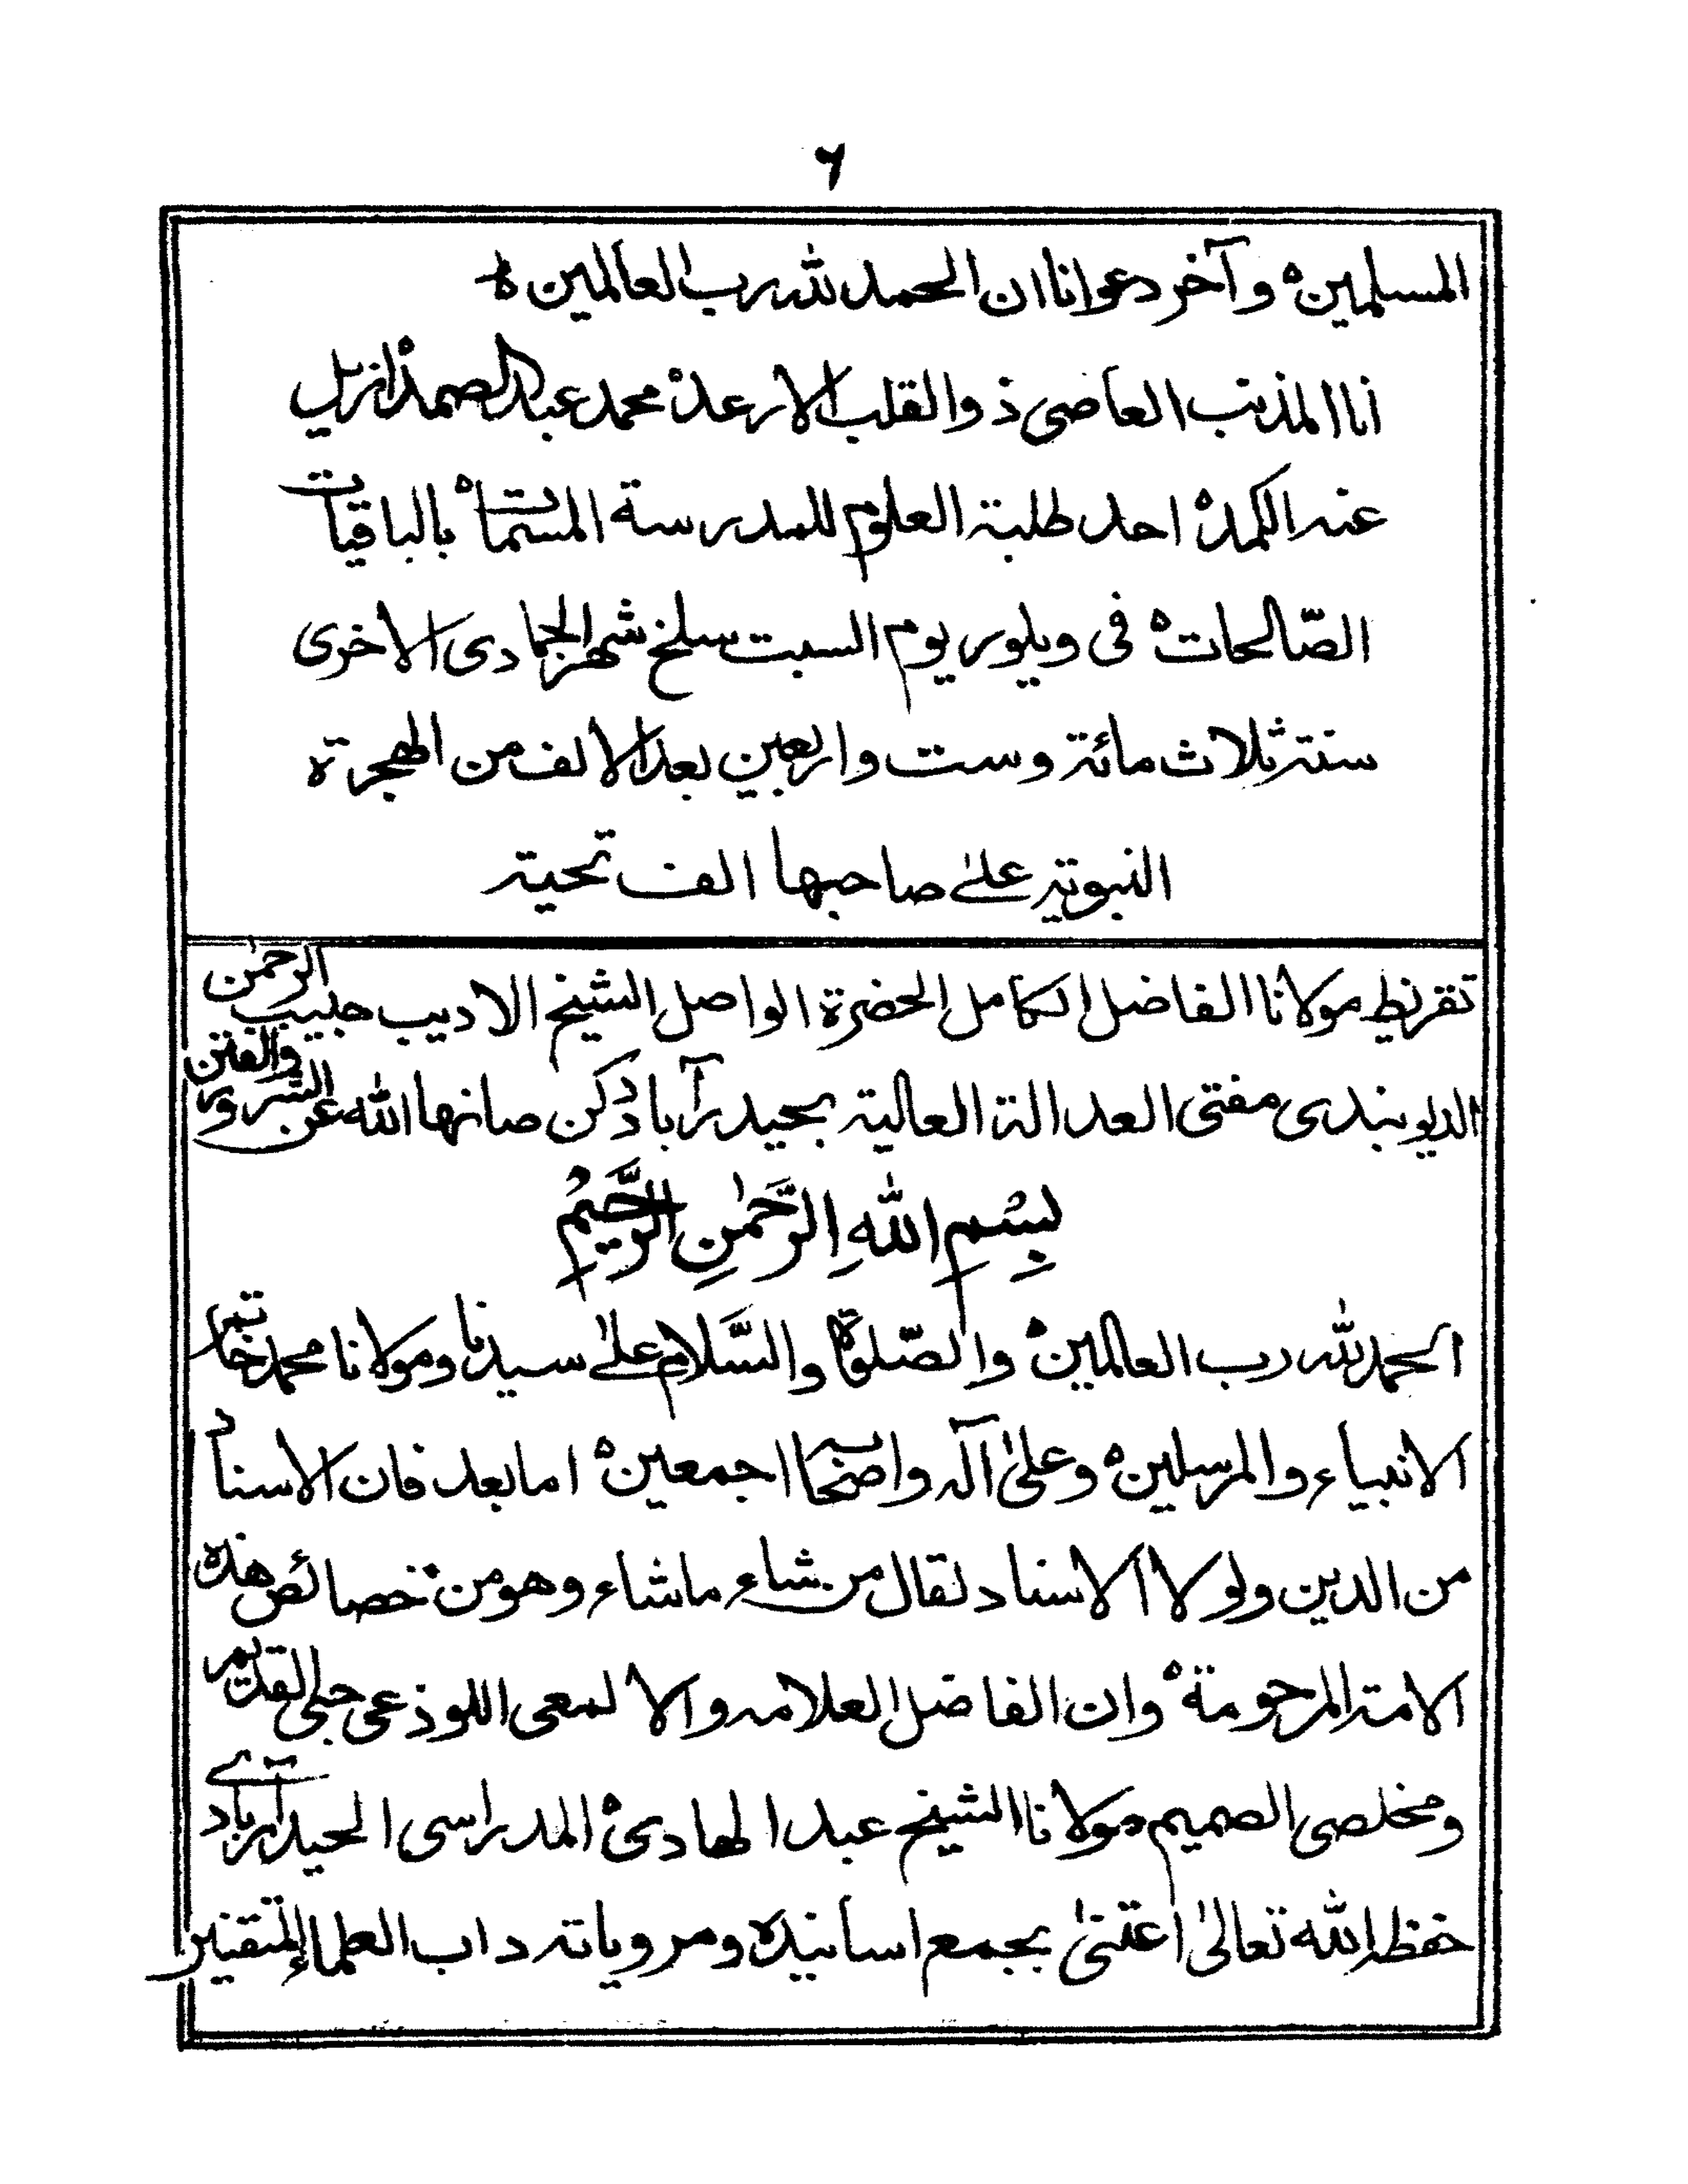 ٦
المسلمين ه وآخر دعوانا ان الحمد لله رب العالمين ه
انا المذنب العاصى ذو القلب الارعد ه محمد عبد الصمد ازيل
عنه الكمد ه احد طلبة العلوم للمدرسة المسمات ه بالباقيات
الصّالحات ه فى ويلور يوم السبت سلخ شهر الجمادى الاخرى
سنة ثلاث مائة وست واربعين بعد الالف من الهجرة
النبوية علىٰ صاحبها الف تحية
تقريظ مولانا الفاضل الكامل الحضرة الواصل الشيخ الاديب حبيب الرحمٰن
الديوبندى مفتى العدالة العالية بحيدرآباد دكن صانها الله عن الشرور والفتن
بِسْمِ اللهِ الرَّحْمٰنِ الرَّحِيْمِ
الحمد لله رب العالمين ه والصّلوة والسَّلام علىٰ سيدنا ومولانا محمد خاتم
الانبياء والمرسلين ه وعلىٰ آله واصحابه اجمعين ه اما بعد فان الاسناد
من الدين ولولا الاسناد لقال من شاء ما شاء وهو من خصائص هذه
الامة المرحومة ه وان الفاضل العلامه والالمعى اللوذعى حبى القديم
ومخلصى الصميم مولانا الشيخ عبد الهادى ه المدراسى الحيدرآبادى
حفظه الله تعالىٰ اعتنىٰ بجمع اسانيده ومروياته داب العلماء المتقنين